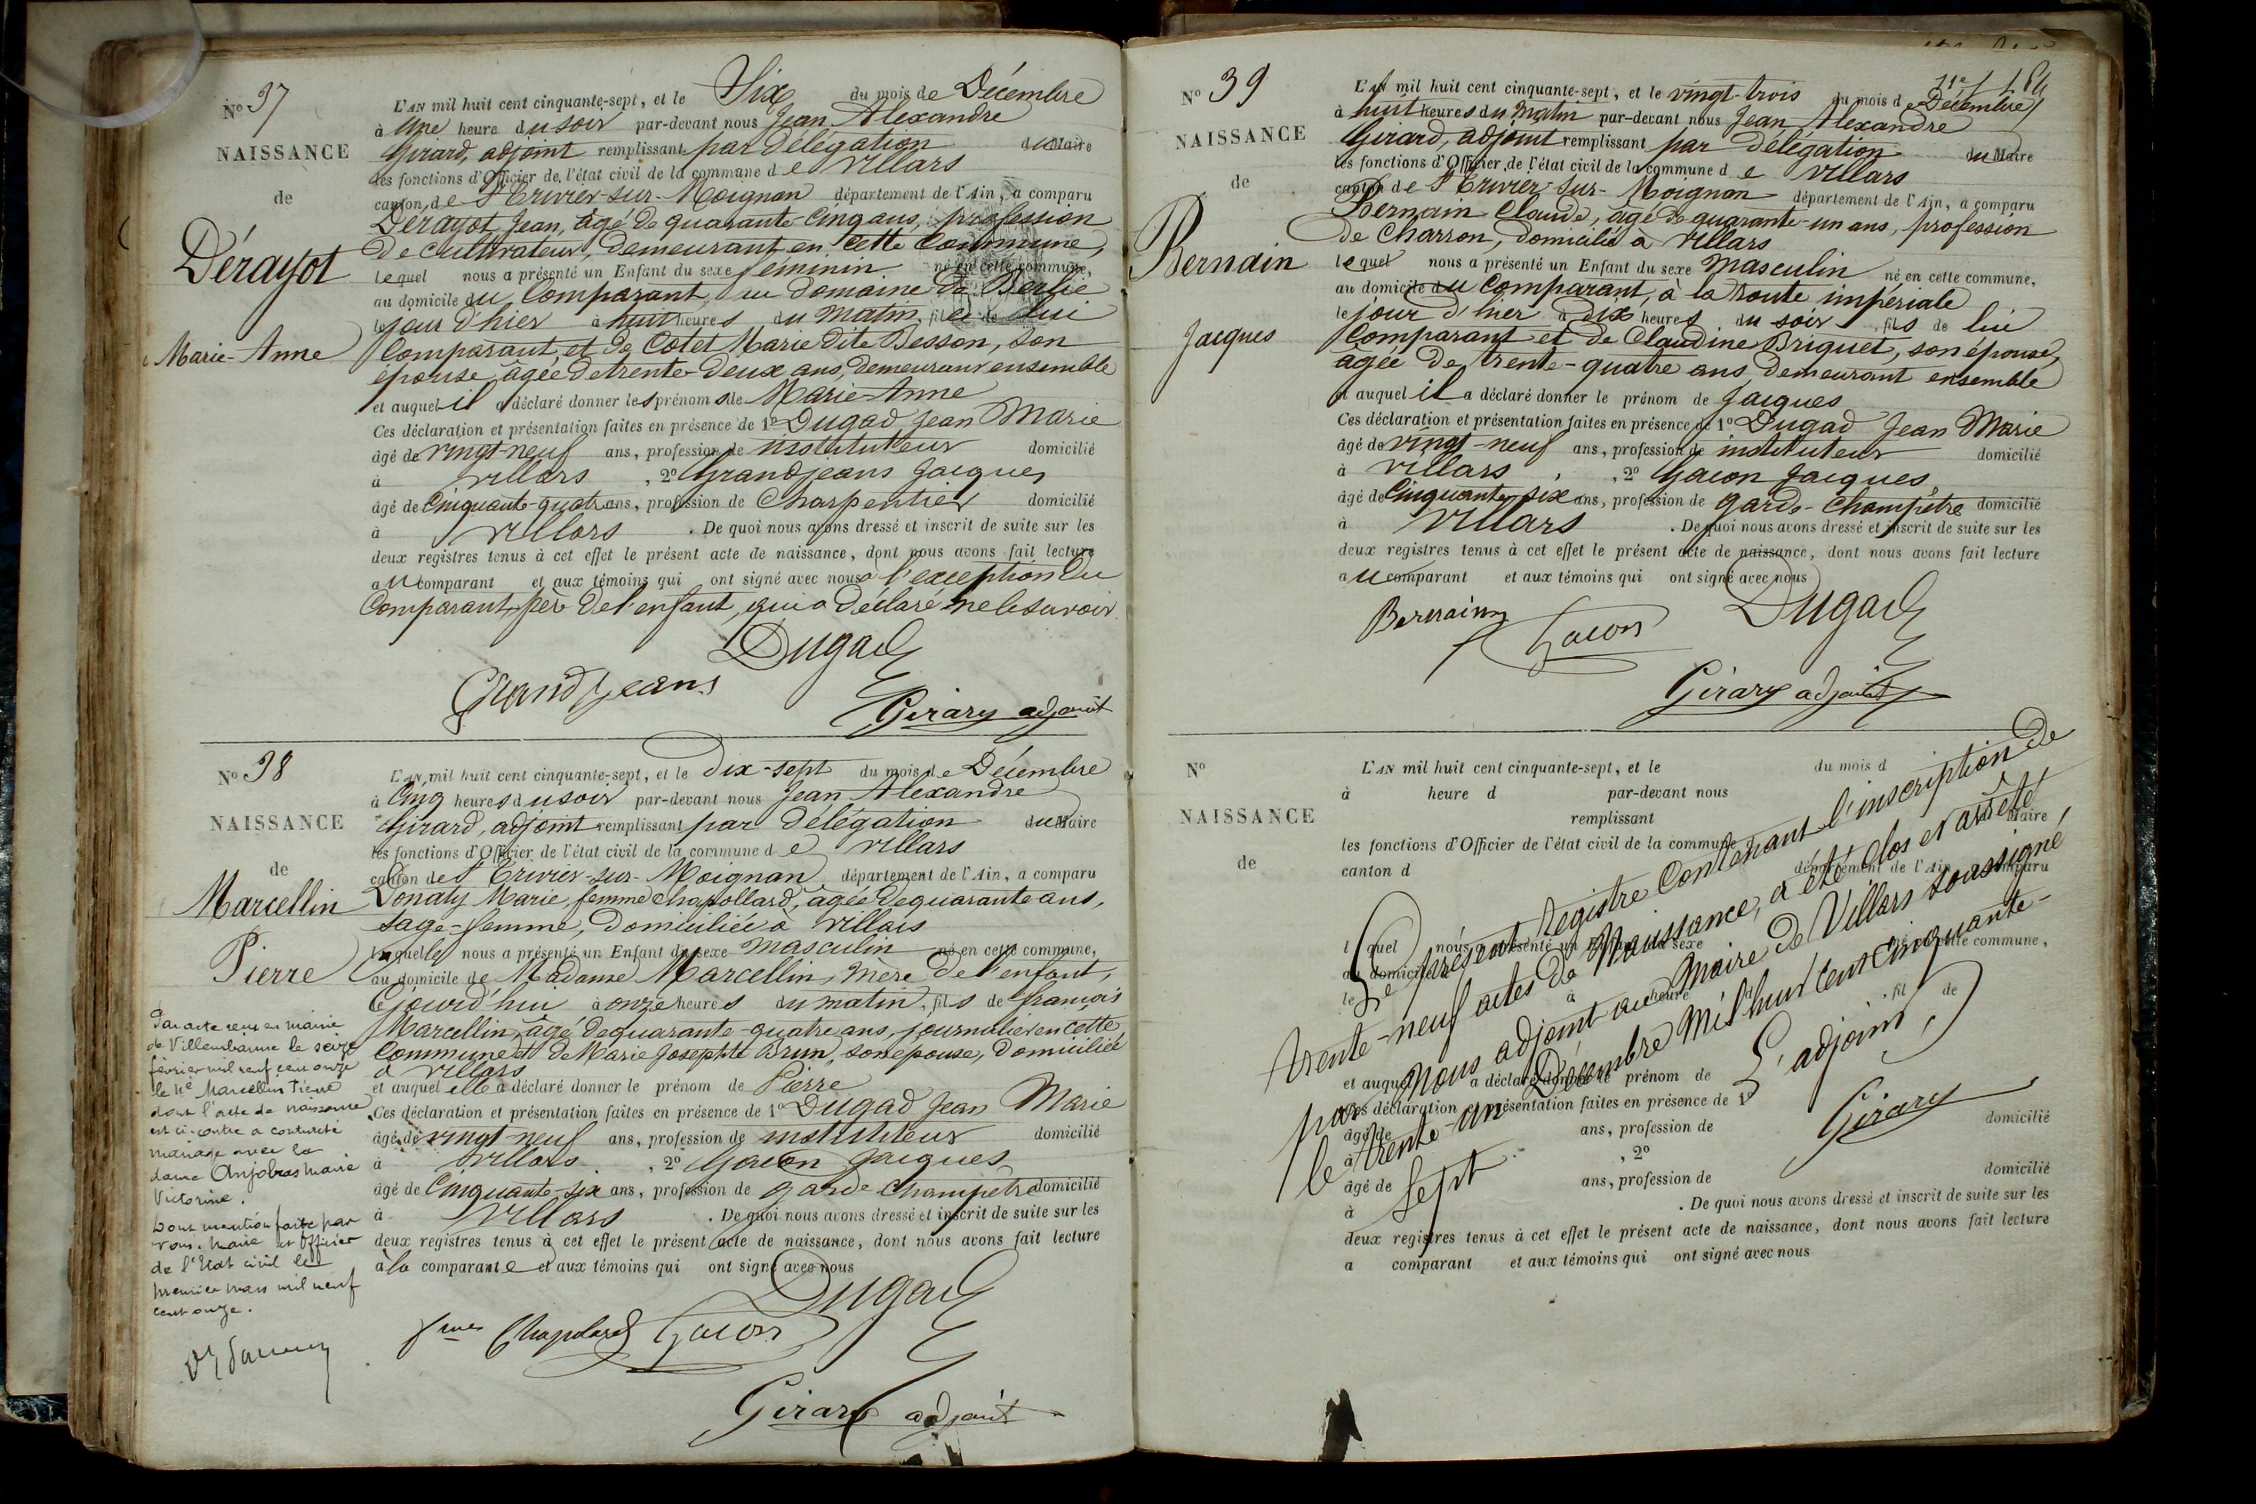 No 37
NAISSANCE
de
Dérayot
Marie-Anne
L'AN mil huit cent cinquante-sept, et le Six du mois de Décembre
à Une heure du soir par-devant nous Jean Alexandre
Girard, adjoint remplissant par délégation du Maire
les fonctions d'Officier de l'état civil de la commune de Villars
canton de St Trivier-sur-Moignan département de l'Ain, a comparu
Dérayot Jean, âgé de quarante cinq ans, profession
de cultivateur, demeurant en cette commune,
lequel nous a présenté un Enfant du sexe féminin né en cette commune,
au domicile du Comparant, au domaine de Berlie
le jour d'hier à huit heures du matin, fille de lui
Comparant, et de Cotet Marie dite Besson, son
épouse âgée de trente-deux ans, demeurant ensemble
et auquel il a déclaré donner les prénoms de Marie-Anne
Ces déclaration et présentation faites en présence de 1o Dugad Jean Marie
âgé de vingt-neuf ans, profession de instituteur domicilié
à Villars, 2o Grandjeans Jacques
âgé de Cinquante-quatre ans, profession de Charpentier domicilié
à Villars . De quoi nous avons dressé et inscrit de suite sur les
deux registres tenus à cet effet le présent acte de naissance, dont nous avons fait lecture
au comparant et aux témoins qui ont signé avec nous à l'exception du
Comparant, père de l'enfant, qui a déclaré ne le savoir
Dugad
Grandjeans
Girard adjoint
No 38
NAISSANCE
de
Marcellin
Pierre
L'AN mil huit cent cinquante-sept, et le dix-sept du mois de Décembre
à Cinq heures du soir par-devant nous Jean Alexandre
Girard, adjoint remplissant par délégation du Maire
les fonctions d'Officier de l'état civil de la commune de Villars
canton de St Trivier-sur-Moignan département de l'Ain, a comparu
Donaty Marie, femme Chapollard, âgée de quarante ans,
sage-femme, domiciliée à Villars
laquelle nous a présenté un Enfant du sexe masculin né en cette commune,
au domicile de Madame Marcellin, mère de l'enfant,
Cejourd'hui à onze heures du matin, fils de françois
Marcellin, âgé de quarante-quatre ans, journalier en cette
Commune et de Marie Josephte Brun, son épouse, domiciliée
à Villars
et auquel elle a déclaré donner le prénom de Pierre
Ces déclaration et présentation faites en présence de 1o Dugad Jean Marie
âgé de vingt-neuf ans, profession de instituteur domicilié
à Villars, 2o Gacon Jacques
âgé de Cinquante-six ans, profession de garde champêtre domicilié
à Villars . De quoi nous avons dressé et inscrit de suite sur les
deux registres tenus à cet effet le présent acte de naissance, dont nous avons fait lecture
à la comparante et aux témoins qui ont signé avec nous
Par acte reçu en mairie
de Villeurbanne le seize
février mil neuf cent onze
le né Marcellin Pierre
dont l'acte de naissance
est ci-contre a contracté
mariage avec la
dame Anjobras Marie
Victorine.
Pour mention faite par
nous Maire et Officier
de l'Etat civil le
premier mars mil neuf
cent onze.
Dugad
fme Chapolard Gacon
Girard adjoint
184
No 39
NAISSANCE
de
Bernain
Jacques
L'AN mil huit cent cinquante-sept, et le vingt-trois du mois de Décembre
à huit heures du matin par-devant nous Jean Alexandre
Girard, adjoint remplissant par délégation du Maire
les fonctions d'Officier de l'état civil de la commune de Villars
canton de St Trivier-sur-Moignan département de l'Ain, a comparu
Bernain Claude, âgé de quarante-un ans, profession
de Charron, domicilié à Villars
lequel nous a présenté un Enfant du sexe Masculin né en cette commune,
au domicile du Comparant, à la route impériale
le jour d'hier à dix heures du soir, fils de lui
Comparant et de Claudine Briquet, son épouse,
âgée de trente-quatre ans demeurant ensemble
et auquel il a déclaré donner le prénom de Jacques
Ces déclaration et présentation faites en présence de 1o Dugad Jean Marie
âgé de vingt-neuf ans, profession de instituteur domicilié
à Villars, 2o Gacon Jacques,
âgé de Cinquante six ans, profession de garde-Champêtre domicilié
à Villars . De quoi nous avons dressé et inscrit de suite sur les
deux registres tenus à cet effet le présent acte de naissance, dont nous avons fait lecture
au comparant et aux témoins qui ont signé avec nous
Bernain Gacon Dugad
Girard adjoint
No
NAISSANCE
de
L'AN mil huit cent cinquante-sept, et le du mois d
à heure d par-devant nous
remplissant Maire
les fonctions d'Officier de l'état civil de la commune
canton d département de l'Ain, a comparu
l quel nous a présenté un Enfant du sexe né en cette commune,
au domicile
le à heure d . fil de
et auquel a déclaré donner le prénom de
Ces déclaration et présentation faites en présence de 1o
âgé de ans, profession de domicilié
à , 2o
âgé de ans, profession de domicilié
à . De quoi nous avons dressé et inscrit de suite sur les
deux registres tenus à cet effet le présent acte de naissance, dont nous avons fait lecture
a comparant et aux témoins qui ont signé avec nous
Le présent Registre Contenant l'inscription de
trente-neuf actes de Naissance, a été clos et arrêté
par Nous adjoint au Maire de Villars soussigné,
le trente-un Décembre Mil huit cent cinquante-
sept
L'adjoint,
Girard